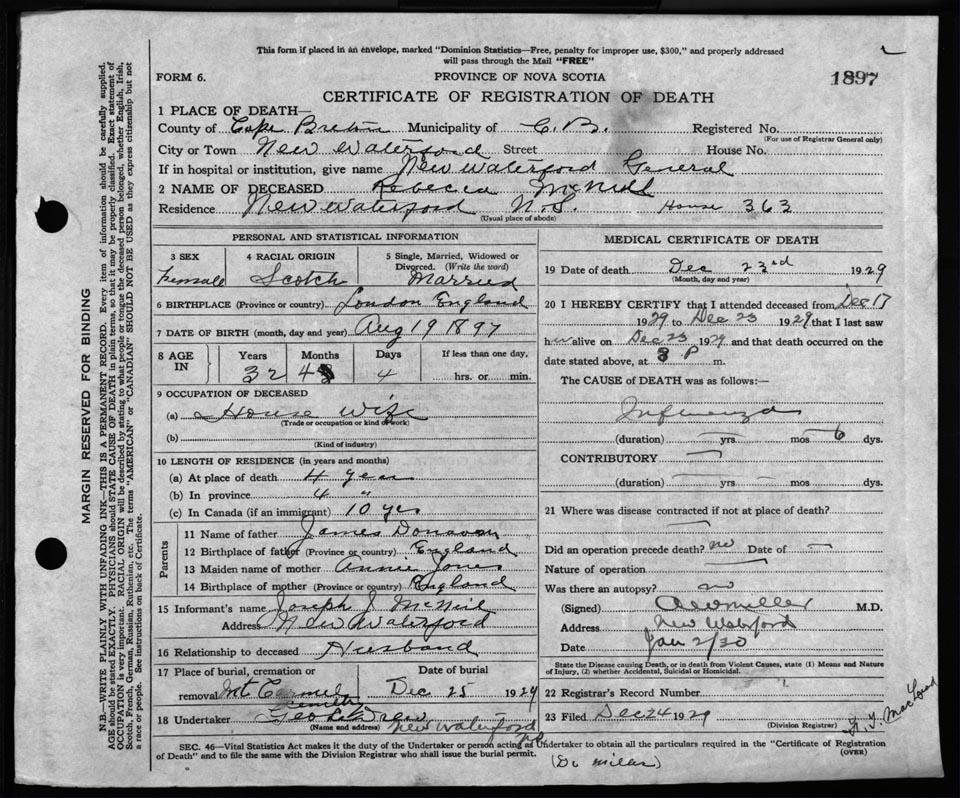 This form if placed in an envelope, marked "Dominion Statistics—Free, penalty for improper use, $300," and properly addressed
will pass through the Mail "FREE"
FORM 6.
PROVINCE OF NOVA SCOTIA
1897
CERTIFICATE OF REGISTRATION OF DEATH
1 PLACE OF DEATH—
County of Cape Breton Municipality of C. B. Registered No.
(For use of Registrar General only)
City or Town New Waterford Street House No.
If in hospital or institution, give name New Waterford General
2 NAME OF DECEASED Rebecca McNeil
Residence New Waterford N.S. House 363
(Usual place of abode)
PERSONAL AND STATISTICAL INFORMATION
3 SEX Femsale
4 RACIAL ORIGIN Scotch
5 Single, Married, Widowed or Divorced. (Write the word) Married
6 BIRTHPLACE (Province or country) London England
7 DATE OF BIRTH (month, day and year) Aug 19 1897
8 AGE IN Years Months Days If less than one day,
32 4 4 hrs. or min.
9 OCCUPATION OF DECEASED
(a) House Wife
(Trade or occupation or kind of work)
(b)
(Kind of industry)
10 LENGTH OF RESIDENCE (in years and months)
(a) At place of death 4 years
(b) In province 4 "
(c) In Canada (if an immigrant) 10 yrs
Parents
11 Name of father James Donavan
12 Birthplace of father (Province or country) England
13 Maiden name of mother Annie Jones
14 Birthplace of mother (Province or country) England
15 Informant's name Joseph J. McNeil
Address New Waterford
16 Relationship to deceased Husband
17 Place of burial, cremation or removal Mt Carmel Cemetery Date of burial Dec 25 1929
18 Undertaker Geo New Waterford
(Name and address)
MEDICAL CERTIFICATE OF DEATH
19 Date of death Dec 23rd 1929
(Month, day and year)
20 I HEREBY CERTIFY that I attended deceased from Dec 17
1929 to Dec 23 1929 that I last saw
her alive on Dec 23 1929 and that death occurred on the
date stated above, at 8 P m.
The CAUSE OF DEATH was as follows:—
Influenza
(duration) yrs. mos 6 dys.
CONTRIBUTORY
(duration) yrs. mos. dys.
21 Where was disease contracted if not at place of death?
Did an operation precede death? no Date of —
Nature of operation
Was there an autopsy? no
(Signed) Miller M.D.
Address New Waterford
Date Jan 2/30
State the Disease causing Death, or in death from Violent Causes, state (1) Means and Nature
of Injury, (2) whether Accidental, Suicidal or Homicidal.
22 Registrar's Record Number
23 Filed Dec 24 1929 MacLeod
(Division Registrar)
SEC. 46—Vital Statistics Act makes it the duty of the Undertaker or person acting as Undertaker to obtain all the particulars required in the "Certificate of Registration
of Death" and to file the same with the Division Registrar who shall issue the burial permit.
(OVER)
(Dr Miller)
MARGIN RESERVED FOR BINDING
N.B.—WRITE PLAINLY WITH UNFADING INK—THIS IS A PERMANENT RECORD. Every item of information should be carefully supplied.
AGE should be stated EXACTLY. PHYSICIANS should STATE CAUSE OF DEATH in plain terms, so that it may be properly classified. Exact statement of
OCCUPATION is very important. RACIAL ORIGIN will be described by stating to what people or tongue the deceased person belonged, whether English, Irish,
Scotch, French, German, Russian, Ruthenian, etc. The terms "AMERICAN" or "CANADIAN" SHOULD NOT BE USED as they express citizenship but not
a race or people. See instructions on back of Certificate.